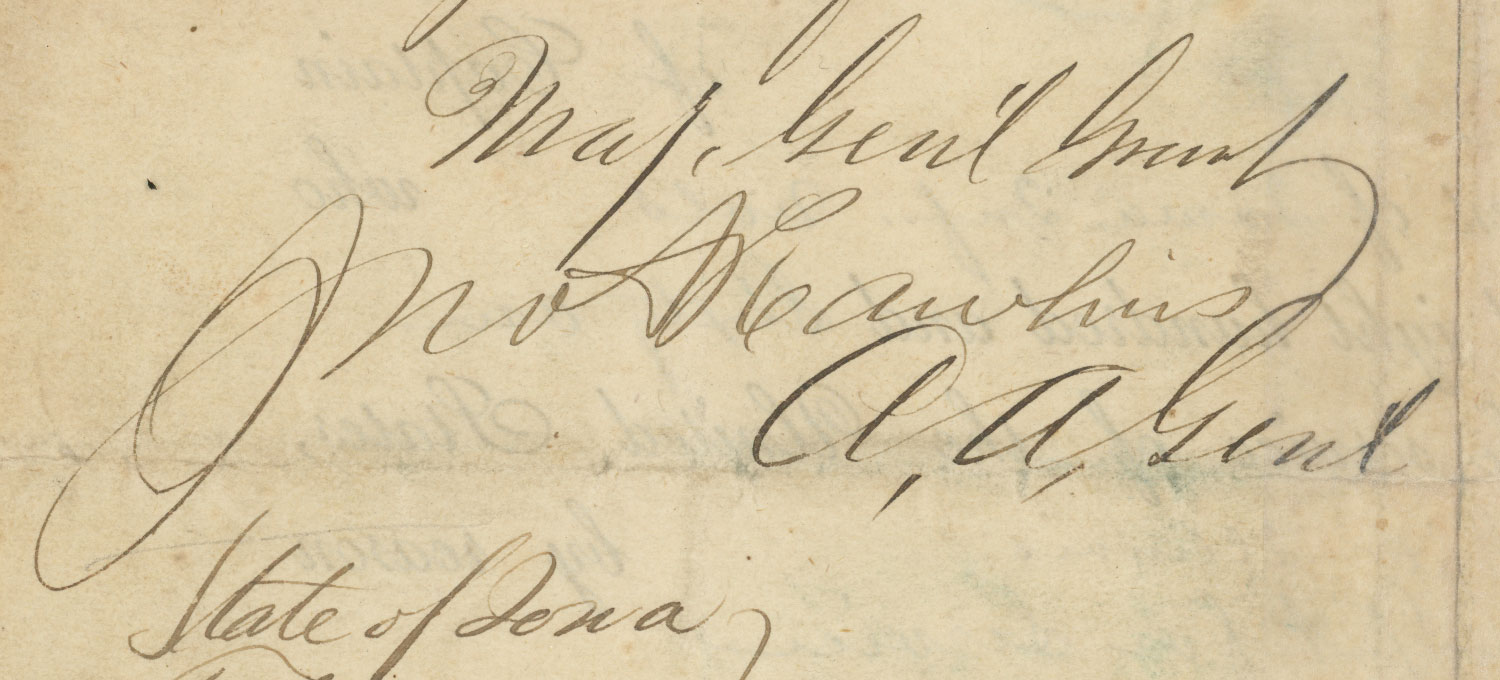 Maj. Gen'l Grant
Jno A Rawlins
A, A, Genl
State of Iowa